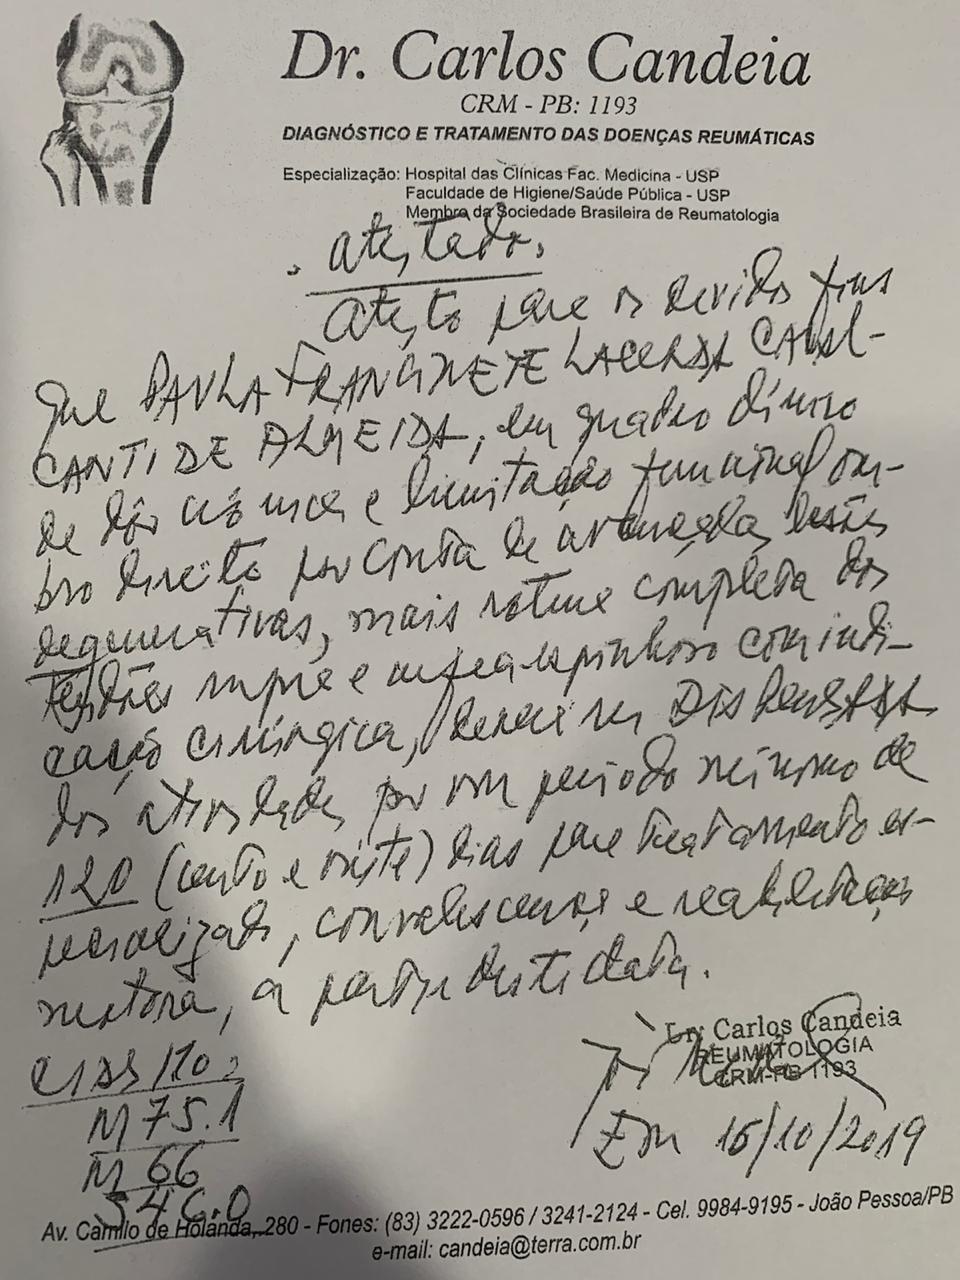 Dr. Carlos Candeia
CRM - PB: 1193
DIAGNÓSTICO E TRATAMENTO DAS DOENÇAS REUMÁTICAS
Especialização: Hospital das Clínicas Fac. Medicina - USP
Faculdade de Higiene/Saúde Pública - USP
Membro da Sociedade Brasileira de Reumatologia
Atestado
Atesto para os devidos fins
que PAULA FRANCINETE LACERDA CAVAL-
CANTI DE ALMEIDA, em quadro
de dor crônica e limitação funcional om-
bro direito por conta de avançadas lesões
degenerativas, mais rotura completa dos
tendões supra e infra-espinhoso com indi-
cação cirúrgica, deverá ser DISPENSADA
das atividades por um período mínimo de
120 (cento e vinte) dias para tratamento es-
pecializado, convalescença e reabilitação
motora, a partir desta data.
Dr. Carlos Candeia
REUMATOLOGIA
CRM-PB 1193
Em 15/10/2019
M 75.1
M 66
S46.0
Av. Camilo de Holanda, 280 - Fones: (83) 3222-0596 / 3241-2124 - Cel. 9984-9195 - João Pessoa/PB
e-mail: candeia@terra.com.br